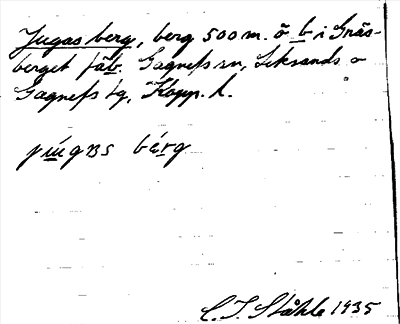 Jugas berg, berg 500 m. ö b i Gräs-
berget fäb. Gagnefs sn, Leksands o
Gagnefs tg, Kopp. l.
bérg
C. I. Ståhle 1935